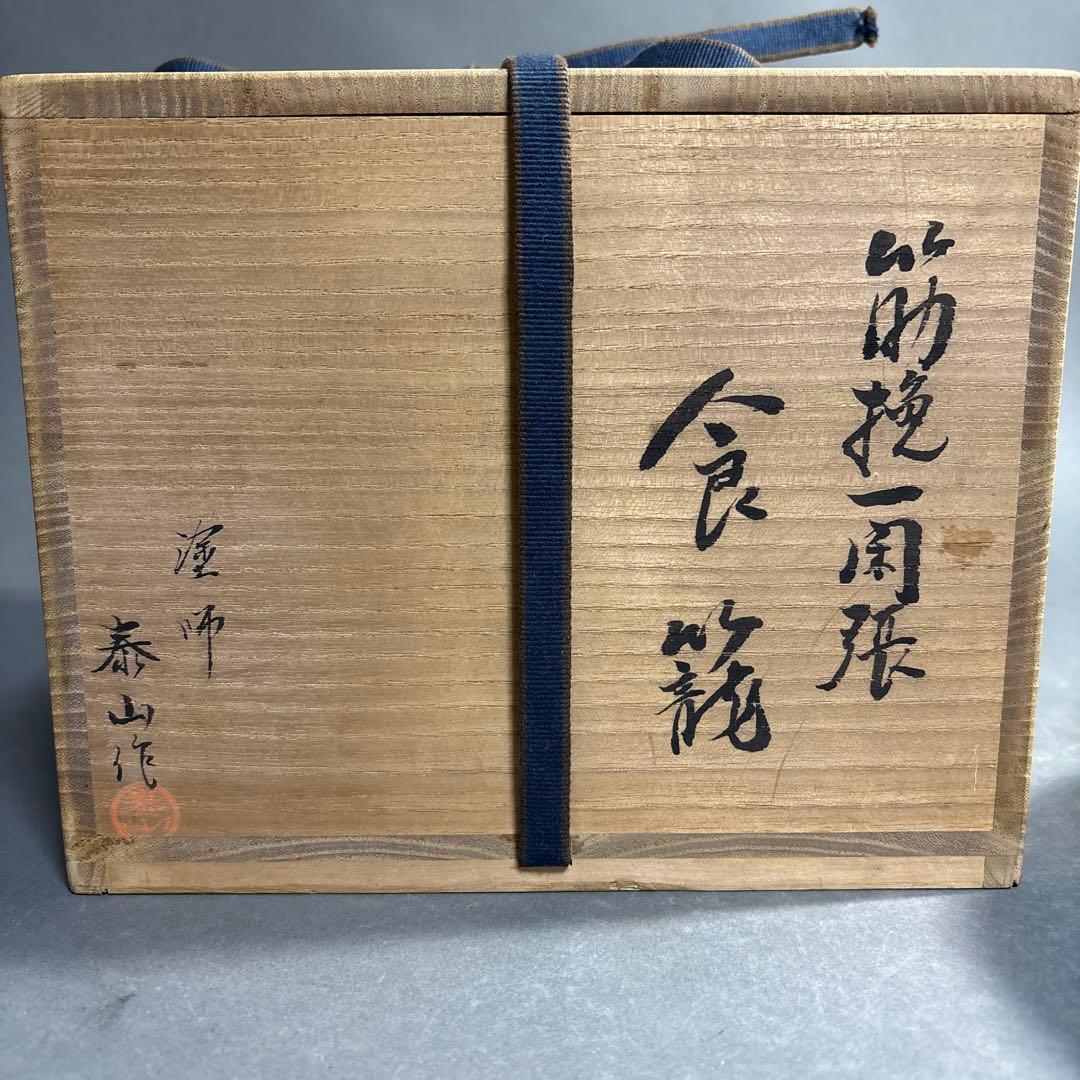 筋挽一閑張
食籠
塗師
泰山作
泰山